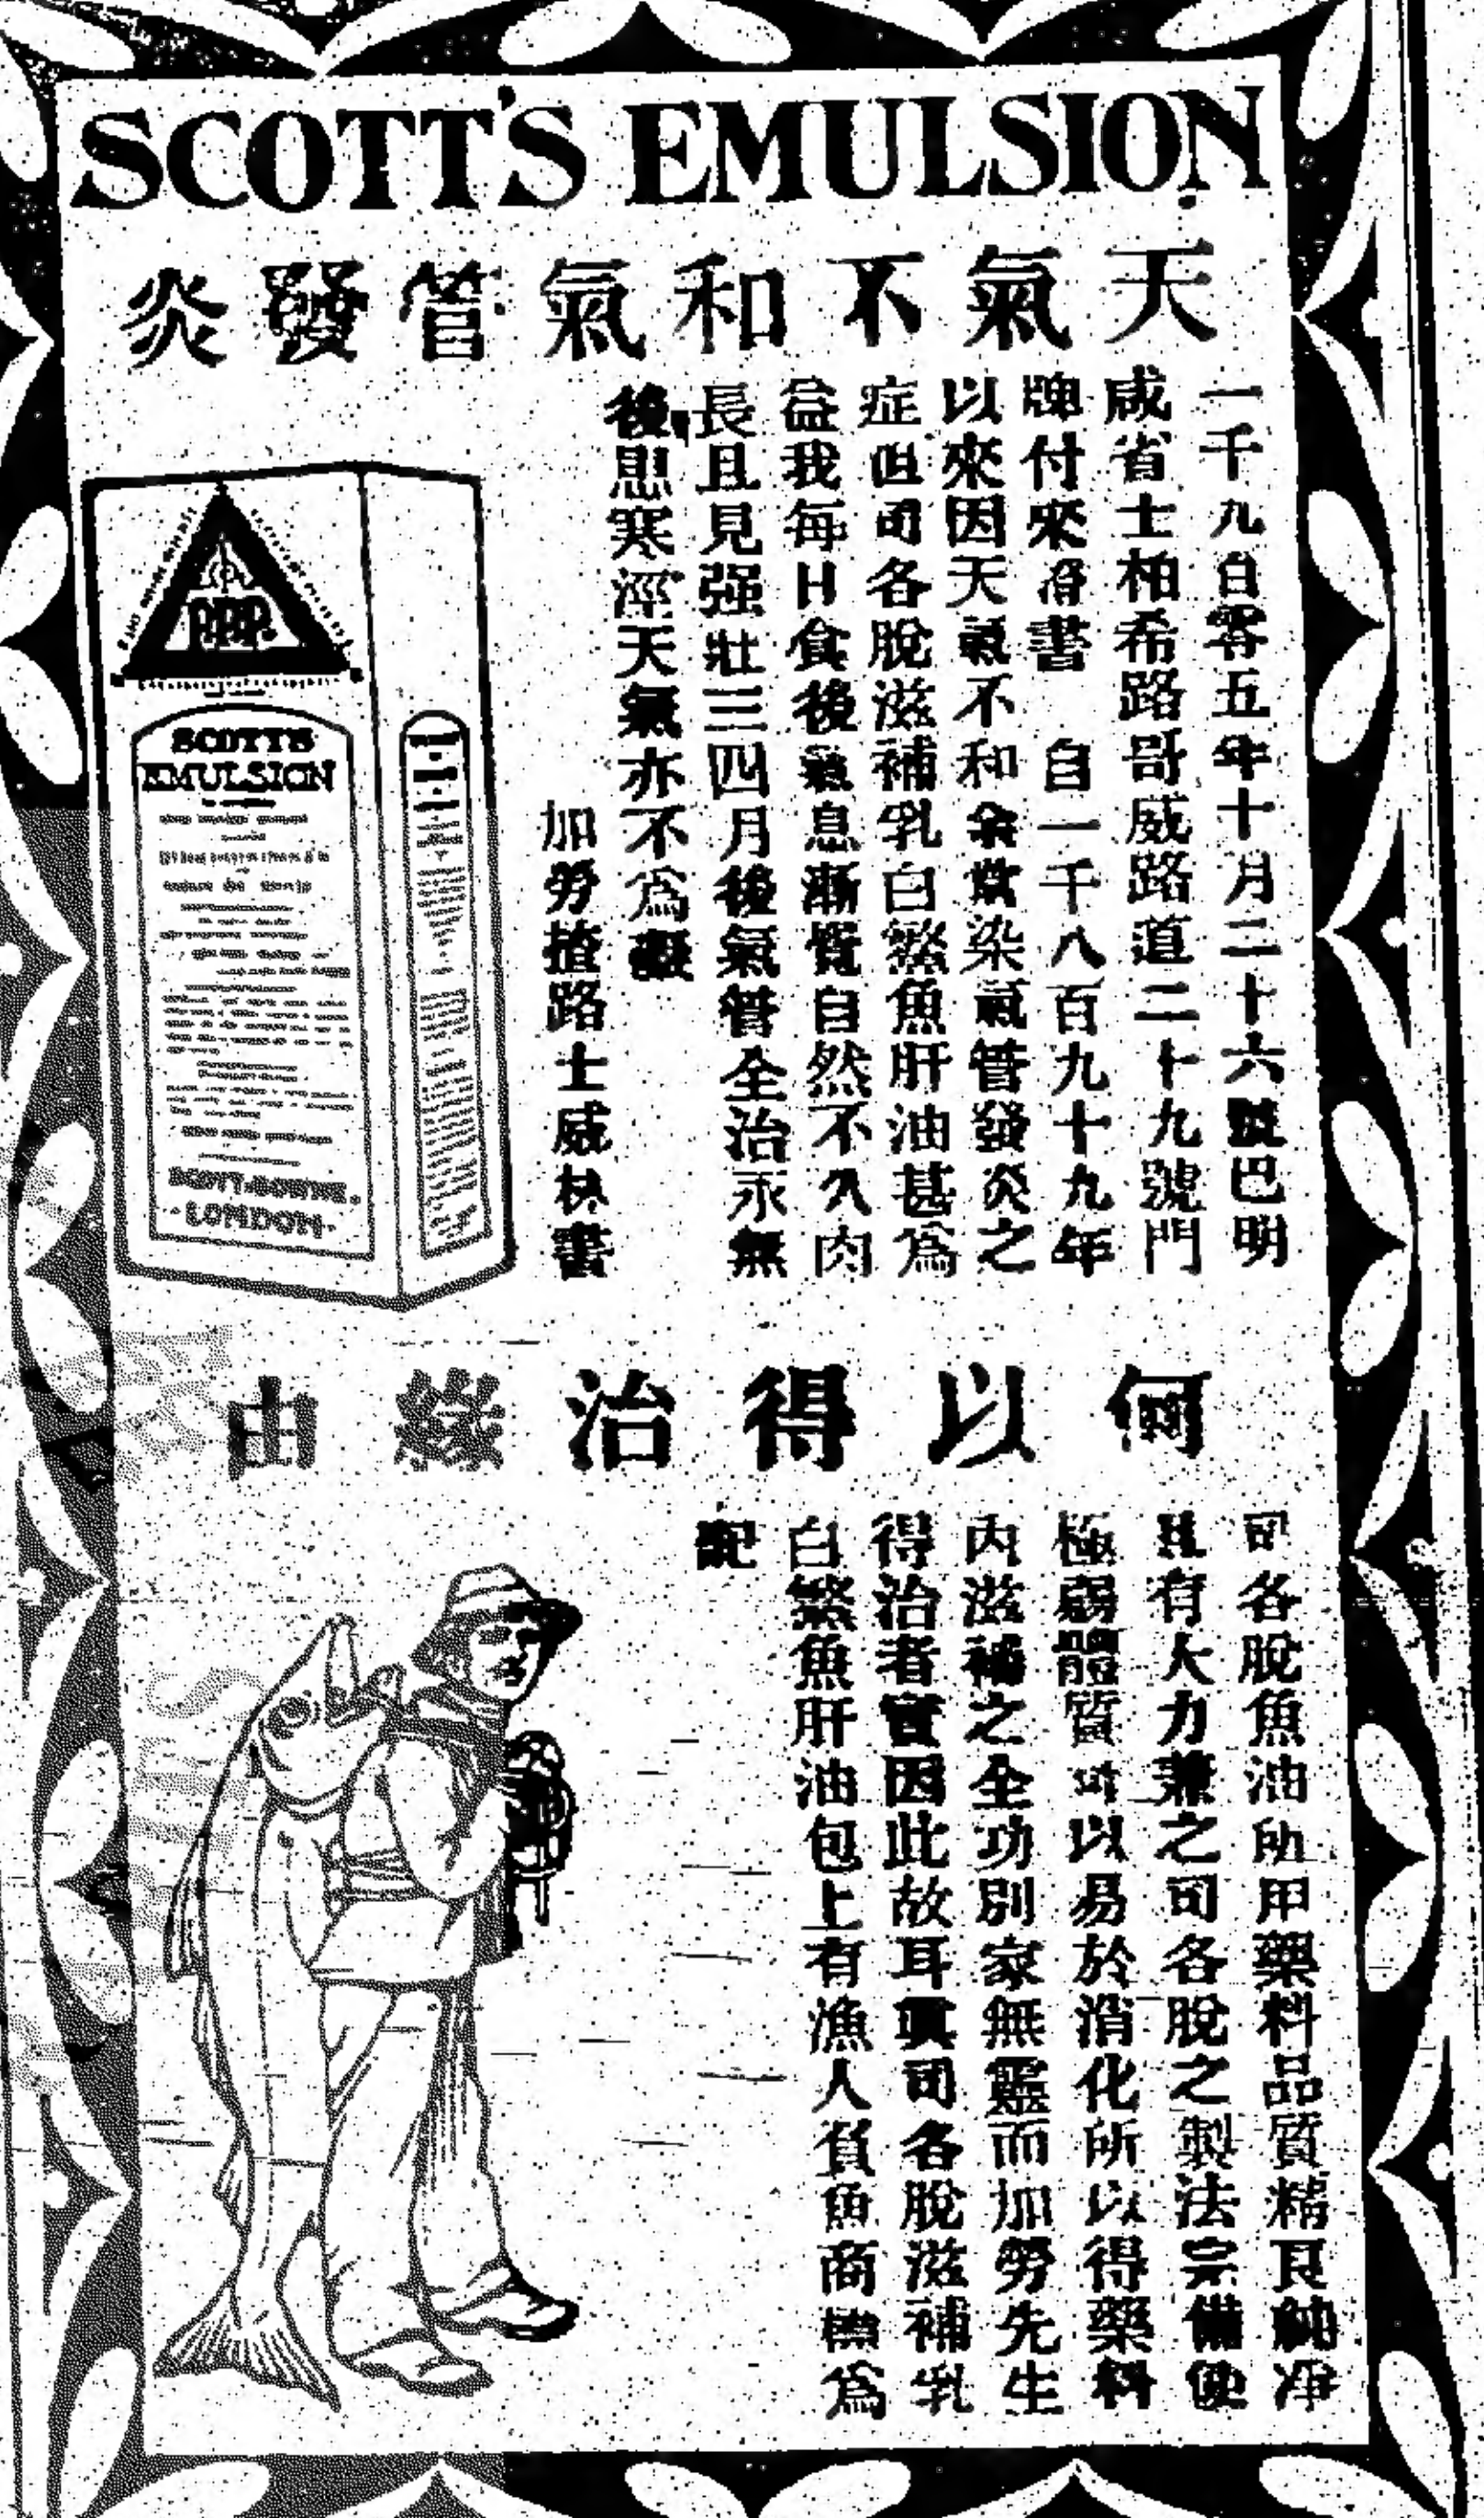 SCOTT'S EMULSION
天氣不和氣管發炎
一千九百零五年十月二十六號巴明
咸省士柏希路哥威路道二十九號門
牌付來書 自一千八百九十九年
以來因天氣不和余常染氣管發炎之
症但司各脫滋補乳白鰵魚肝油甚爲
益我每日食後氣息漸覺自然不久肉
長且見强壯三四月後氣管全治永無
後患寒溼天氣亦不爲礙
加勞揸路士威林書
SCOTT'S
EMULSION
SCOTT & BOWNE
LONDON
何以得治緣由
司各脫魚油所用藥料品質精良純淨
且有大力兼之司各脫之製法完備使
極弱體質可以易於消化所以得藥料
內滋補之全功別家無靈而加勞先生
得治者實因此故耳眞司各脫滋補乳
白鰵魚肝油包上有漁人負魚商標爲
記